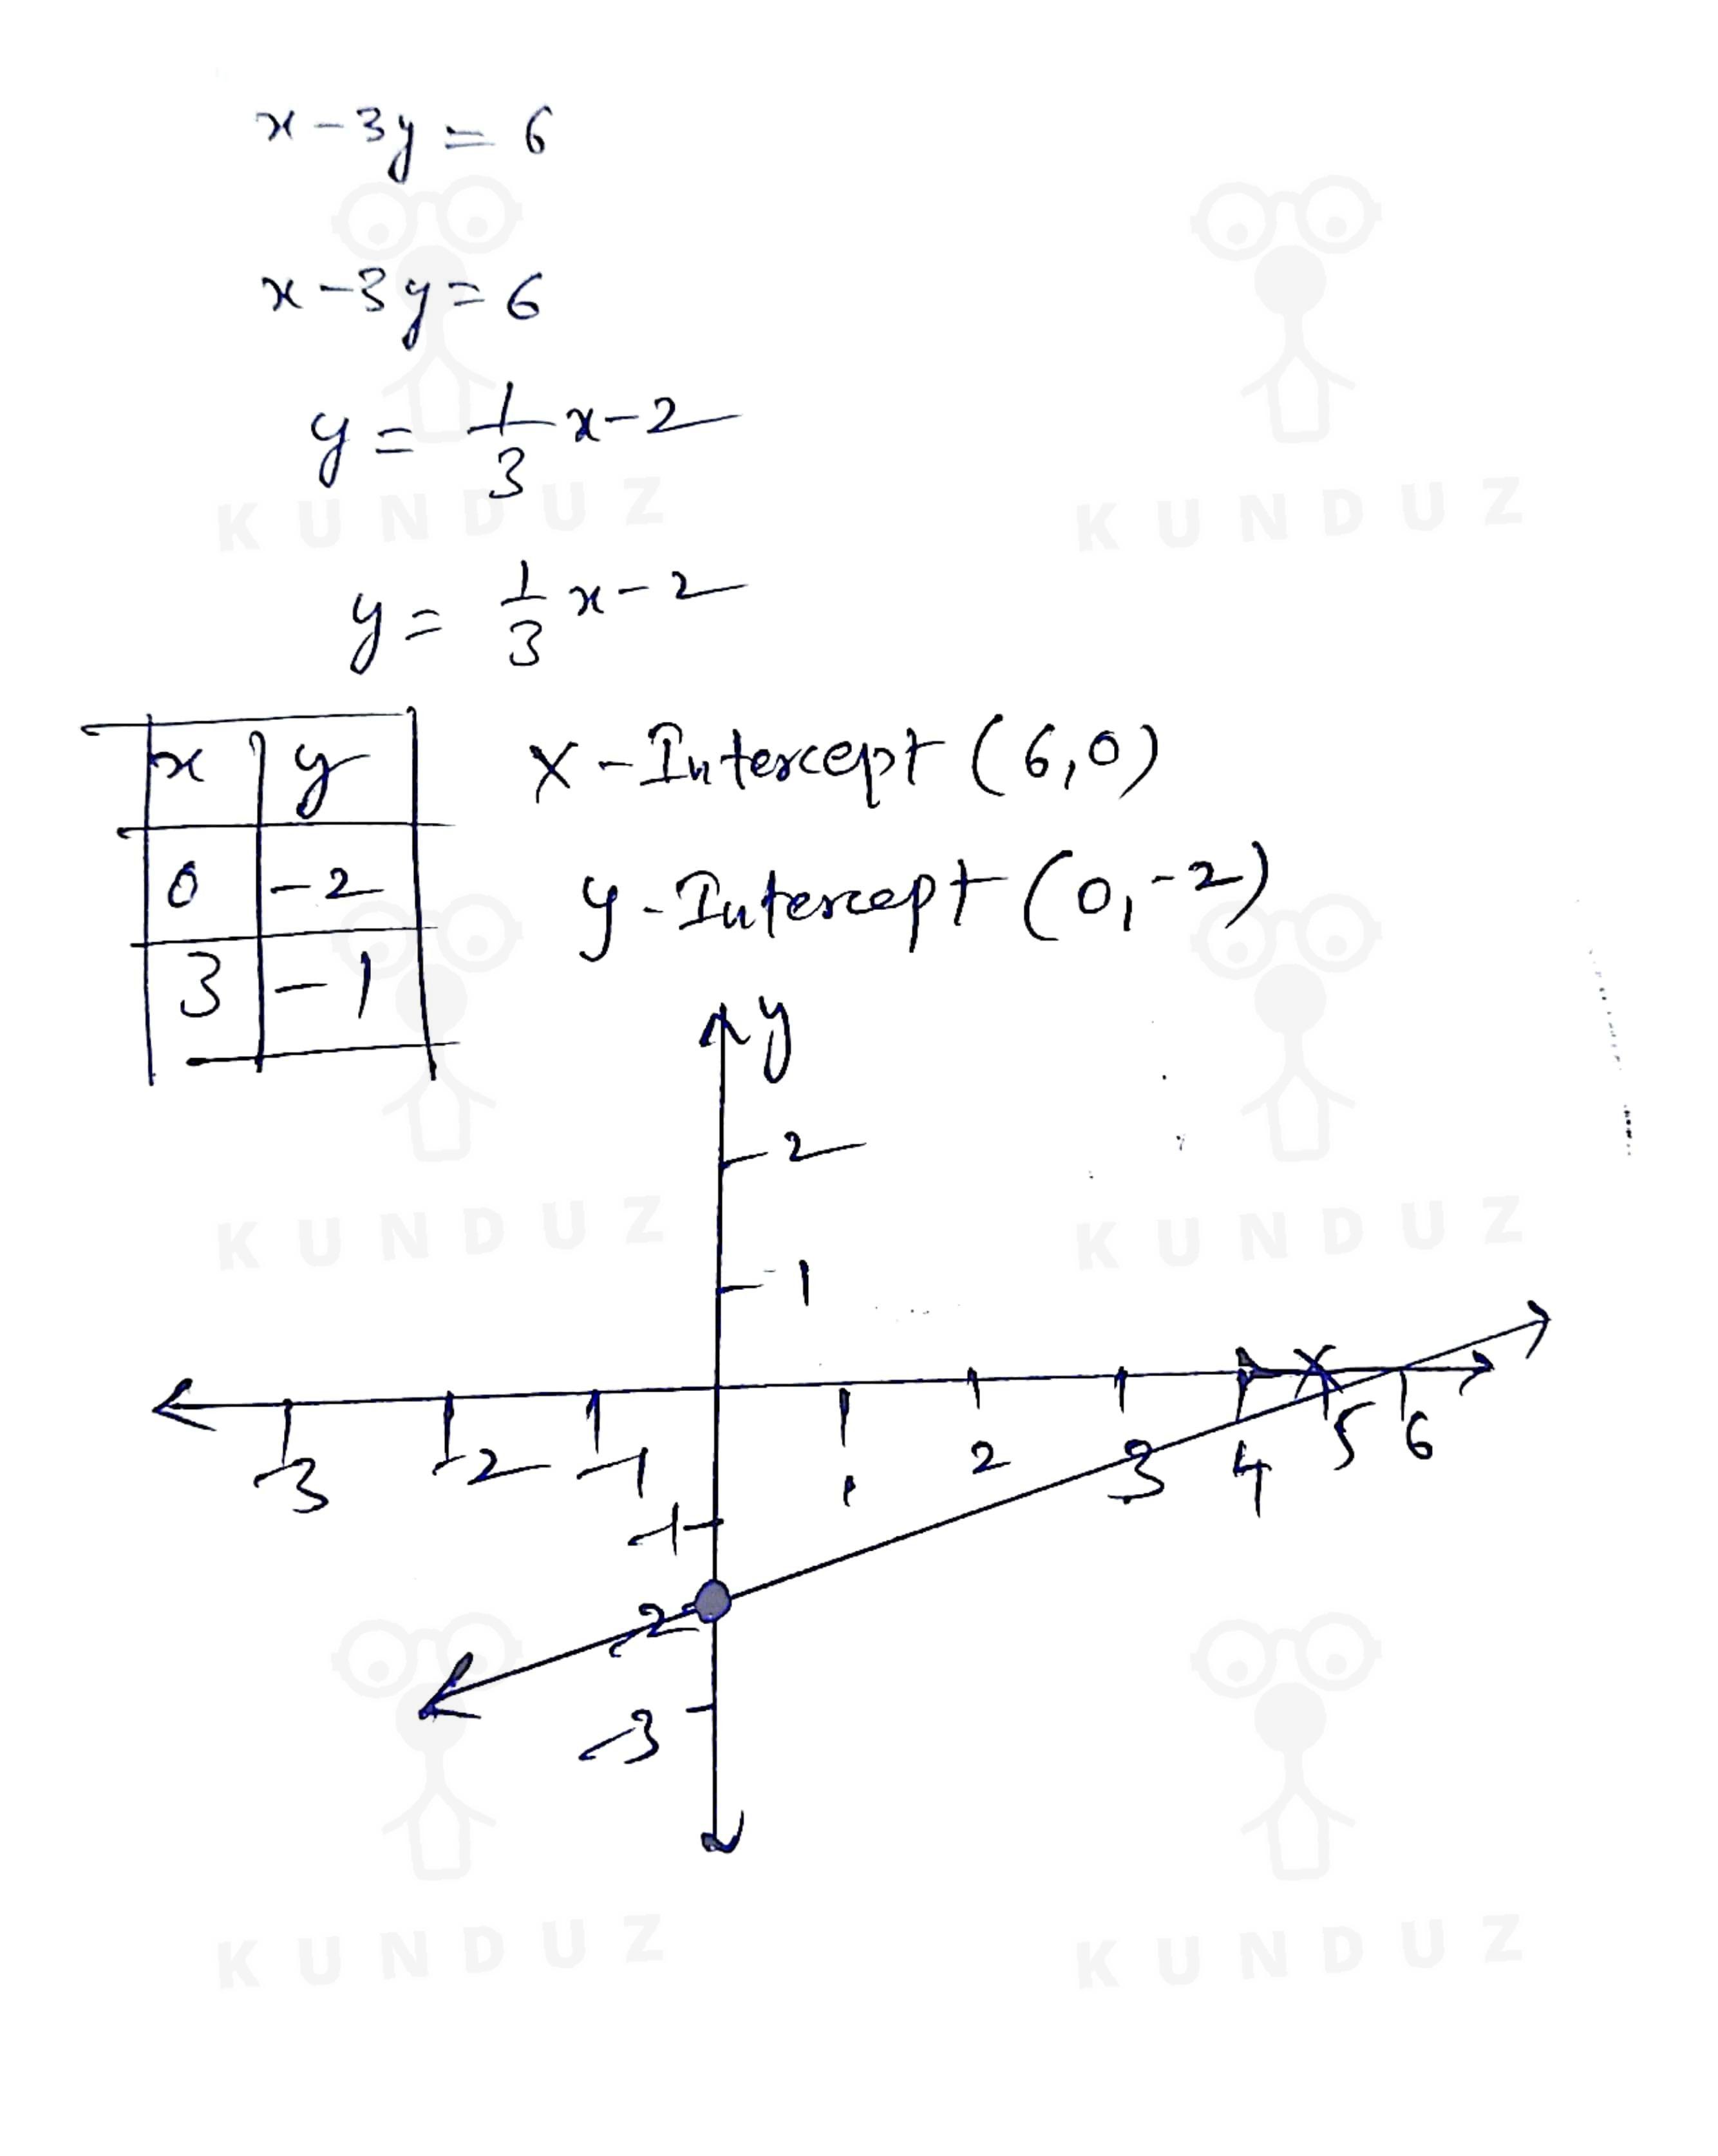 x - 3y = 6
x - 3y = 6
y = 1/3 x - 2
KUNDUZ KUNDUZ
y = 1/3 x - 2
x y
0 -2
3 -1
x - Intercept (6,0)
y - Intercept (0,-2)
y
2
KUNDUZ KUNDUZ
1
-3 -2 -1 1 2 3 4 5 6
-1
-2
-3
KUNDUZ KUNDUZ